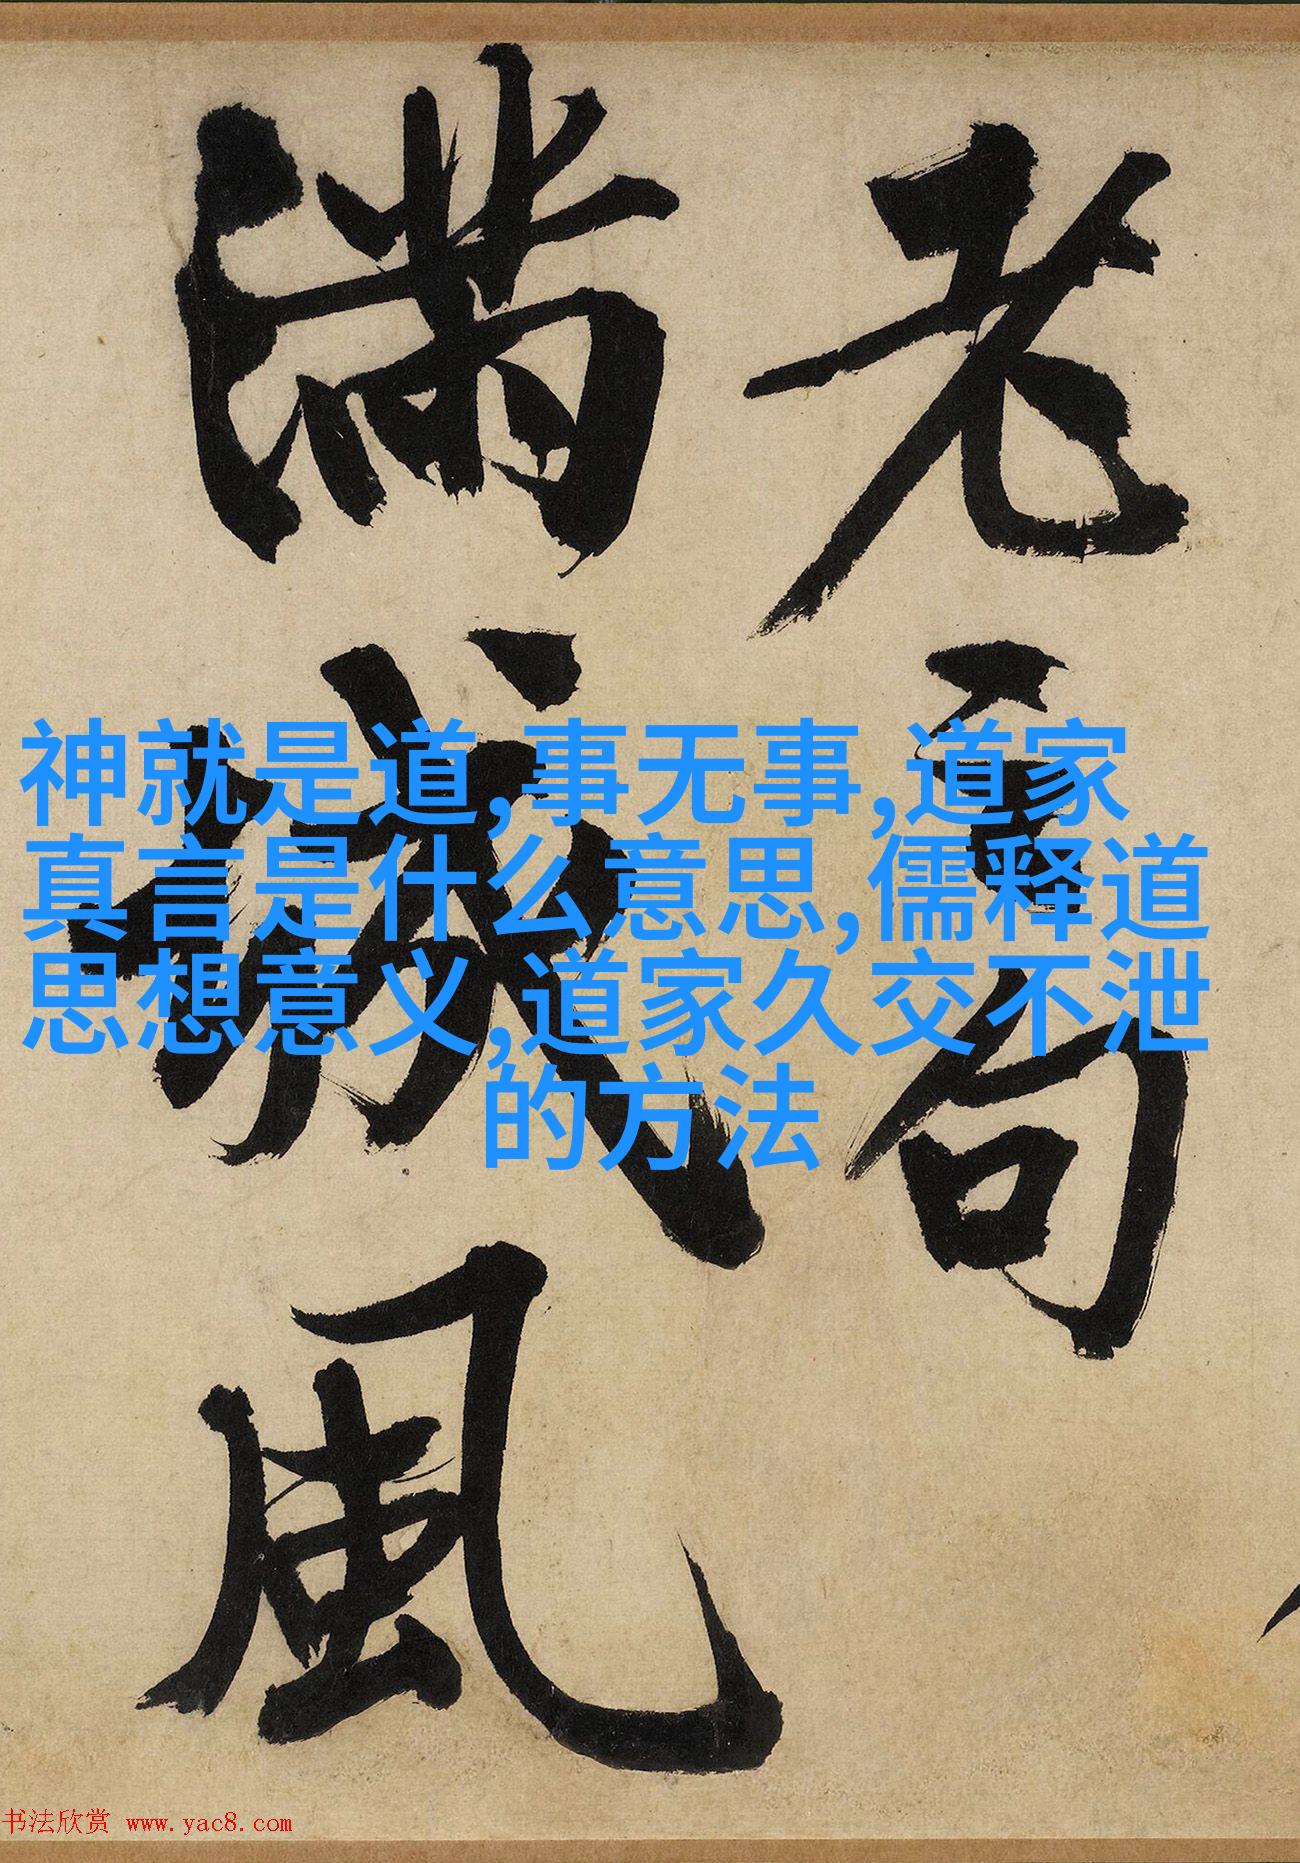 老
言
句
满
城
风
神就是道,事无事,道家
真言是什么意思,儒释道
思想意义,道家久交不泄
的方法
书法欣赏 www.yac8.com